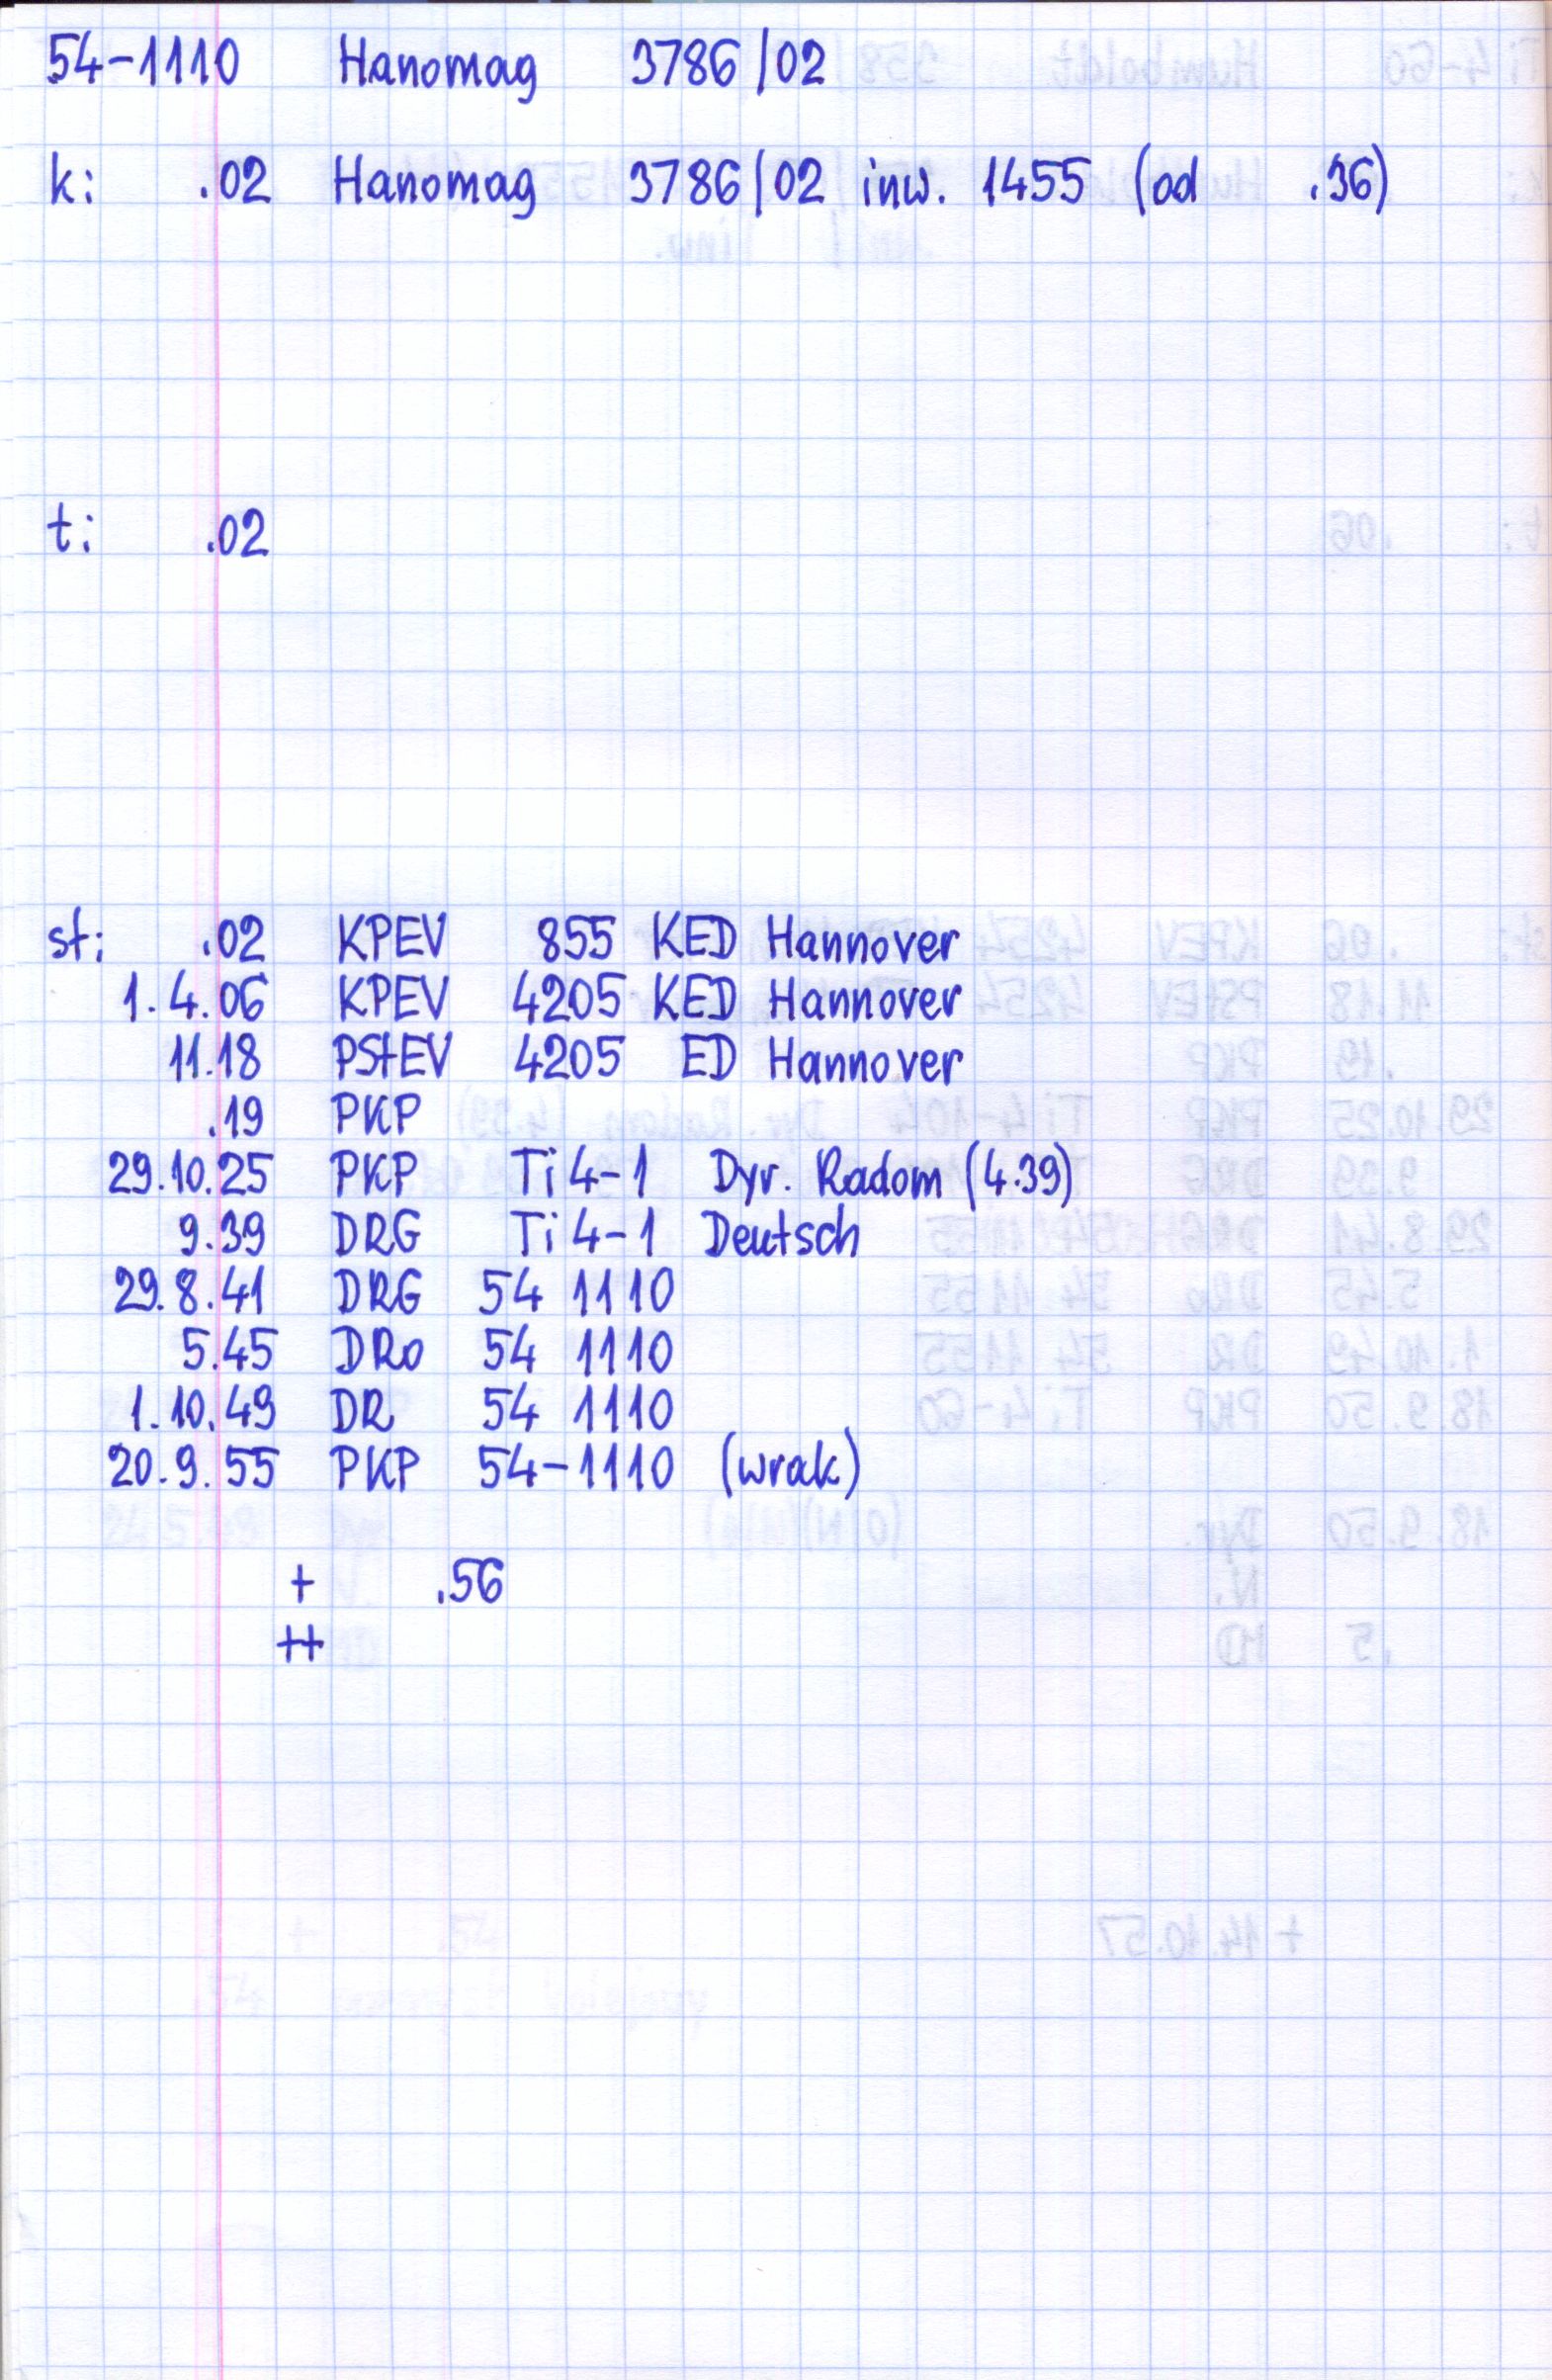 54-1110 Hanomag 3786/02
k: .02 Hanomag 3786/02 inw. 1455 (od .36)
t: .02
st: .02 KPEV 855 KED Hannover
1.4.06 KPEV 4205 KED Hannover
11.18 PStEV 4205 ED Hannover
.19 PKP
29.10.25 PKP Ti4-1 Dyr. Radom (4.39)
9.39 DRG Ti4-1 Deutsch
29.8.41 DRG 54 1110
5.45 DRo 54 1110
1.10.49 DR 54 1110
20.9.55 PKP 54-1110 (wrak)
+ .56
++